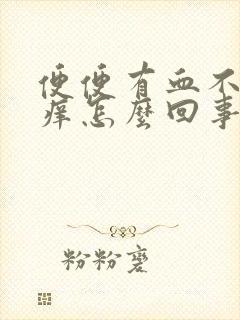 便便有血不
痒怎麼回事
粉粉裹